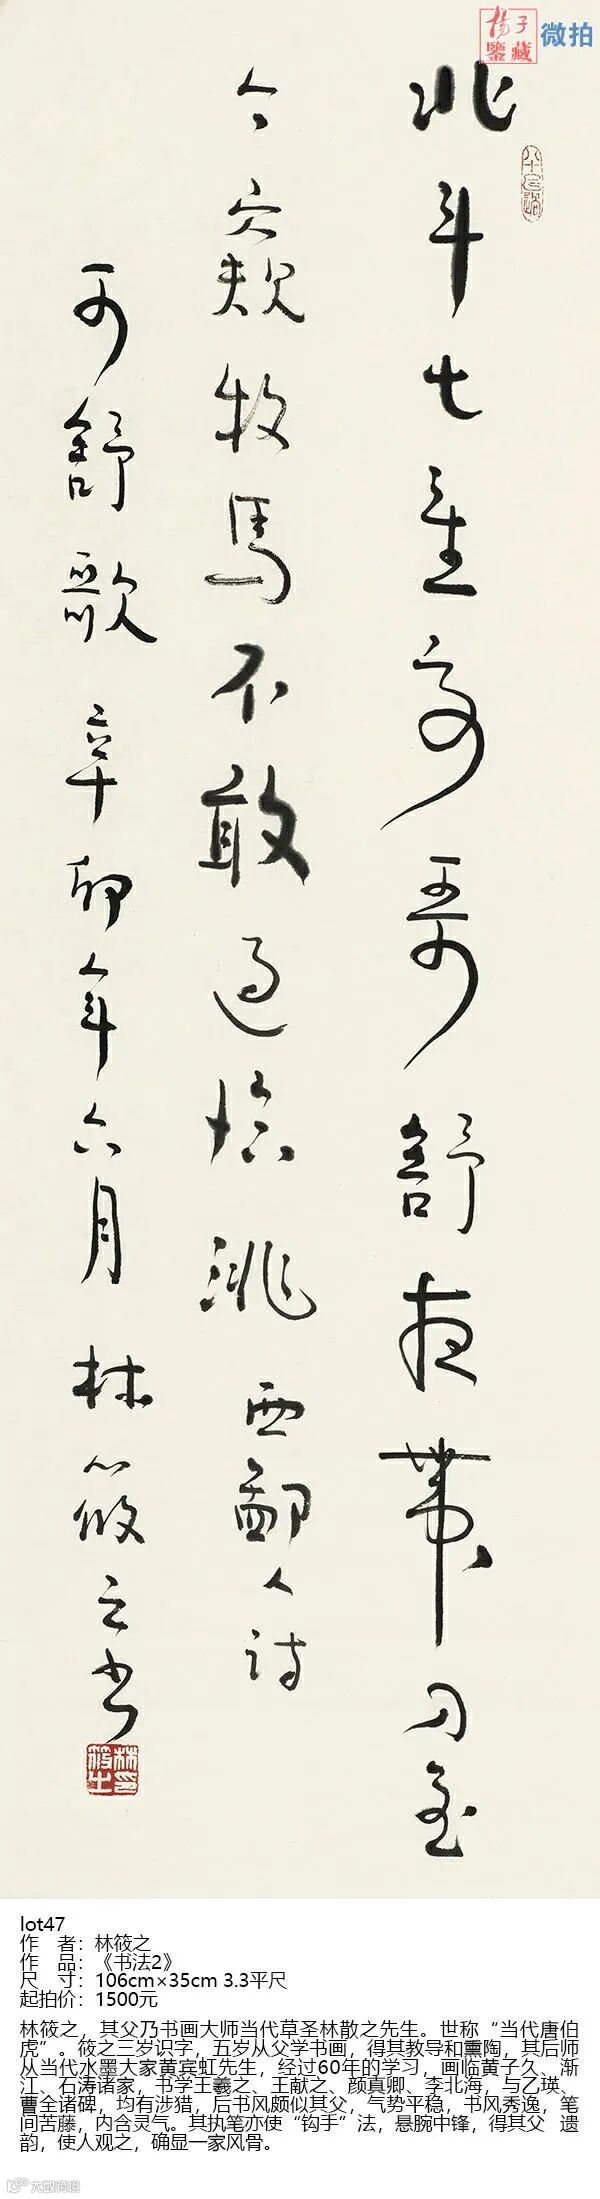 揚子
鑒藏
微拍
北斗七星高哥舒夜帶刀至
今窺牧馬不敢過臨洮 西鄙人詩
哥舒歌 辛卯年六月 林筱之书
林筱之印
lot47
作 者：林筱之
作 品：《书法2》
尺 寸：106cm×35cm 3.3平尺
起拍价：1500元
林筱之，其父乃书画大师当代草圣林散之先生。世称“当代唐伯
虎”。筱之三岁识字，五岁从父学书画，得其教导和熏陶，其后师
从当代水墨大家黄宾虹先生，经过60年的学习，画临黄子久、渐
江、石涛诸家，书学王羲之、王献之、颜真卿、李北海，与乙瑛、
曹全诸碑，均有涉猎，后书风颇似其父，气势平稳，书风秀逸，笔
间苦藤，内含灵气。其执笔亦使“钩手”法，悬腕中锋，得其父 遗
韵，使人观之，确显一家风骨。
大数跨境